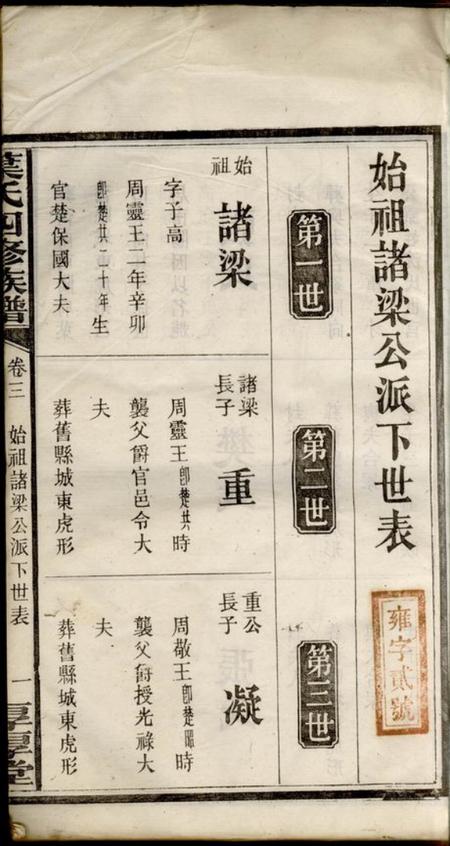 始祖諸梁公派下世表
雍字貳號
第一世
始祖
諸梁
字子高
周靈王二年辛卯
卽楚共二十年生
官楚保國大夫
第二世
諸梁
長子
重
周靈王卽楚共時
襲父爵官邑令大
夫
葬舊縣城東虎形
第三世
重公
長子
凝
周敬王卽楚昭時
襲父爵授光祿大
夫
葬舊縣城東虎形
葉氏四修族譜
卷三
始祖諸梁公派下世表
一